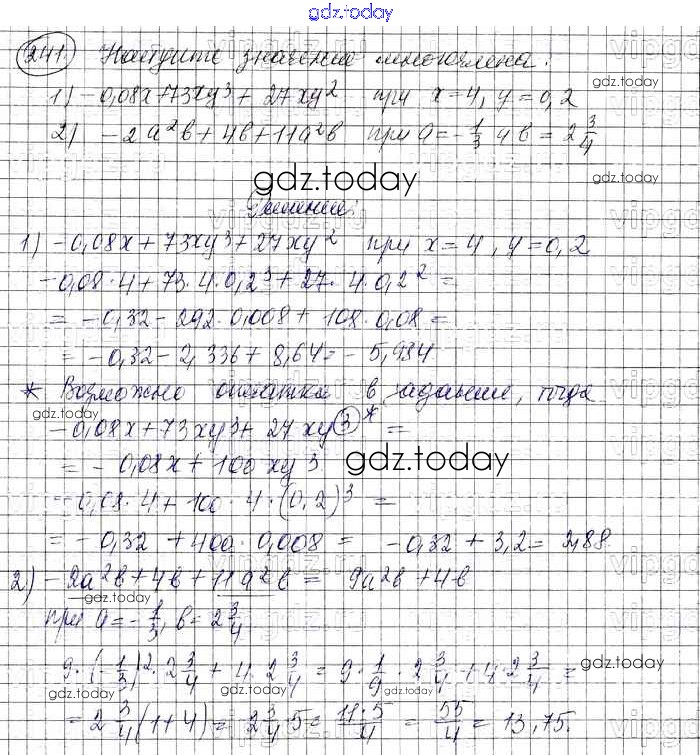 gdz.today
241. Найдите значение многочлена:
1) -0,08x+73xy³+27xy² при x=4, y=0,2
gdz.today
2) -2a²b+4b+11a²b при a=-1/3 и b=2 3/4
gdz.today
gdz.today
Решение:
1) -0,08x+73xy³+27xy² при x=4, y=0,2
-0,08·4+73·4·0,2³+27·4·0,2²=
= -0,32-292·0,008+108·0,08=
= -0,32-2,336+8,64=-5,984
* Возможно опечатка в задании, тогда
gdz.today
-0,08x+73xy³+27xy³* =
= -0,08x+100xy³
gdz.today
-0,08·4+100·4·(0,2)³ =
= -0,32+400·0,008= -0,32+3,2=2,88
2) -2a²b+4b+11a²b= 9a²b+4b
gdz.today
при a=-1/3, b=2 3/4
9·(-1/3)²·2 3/4+4·2 3/4=9·1/9·2 3/4+4·2 3/4=
gdz.today
gdz.today
=2 3/4(1+4)=2 3/4·5=11·5/4=55/4=13,75.
gdz.today